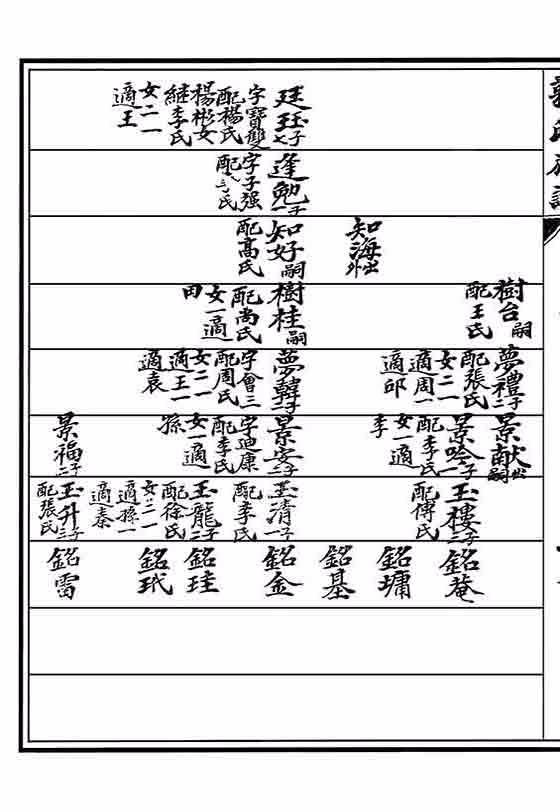 郭氏族譜
廷珏子七
字寶雙
配楊氏
楊彬女
繼李氏
女二一
適王
逢勉一子
字子强
配氏
知海出外
知好嗣
配高氏
樹台嗣
配王氏
樹桂嗣
配尚氏
女一適
田
夢禮二子
配張氏
女二一
適周一
適邱
夢韓二子
字會三
配周氏
女二一
適王一
適袁
景献出嗣
景吟一子
配李氏
女一適
李
景安二子
字迪康
配李氏
女一適
孫
景福二子
玉樓三子
配傅氏
玉清一子
配李氏
玉龍二子
配徐氏
女二一
適孫一
適秦
玉升三子
配張氏
銘菴
銘墉
銘基
銘金
銘珪
銘玳
銘雷